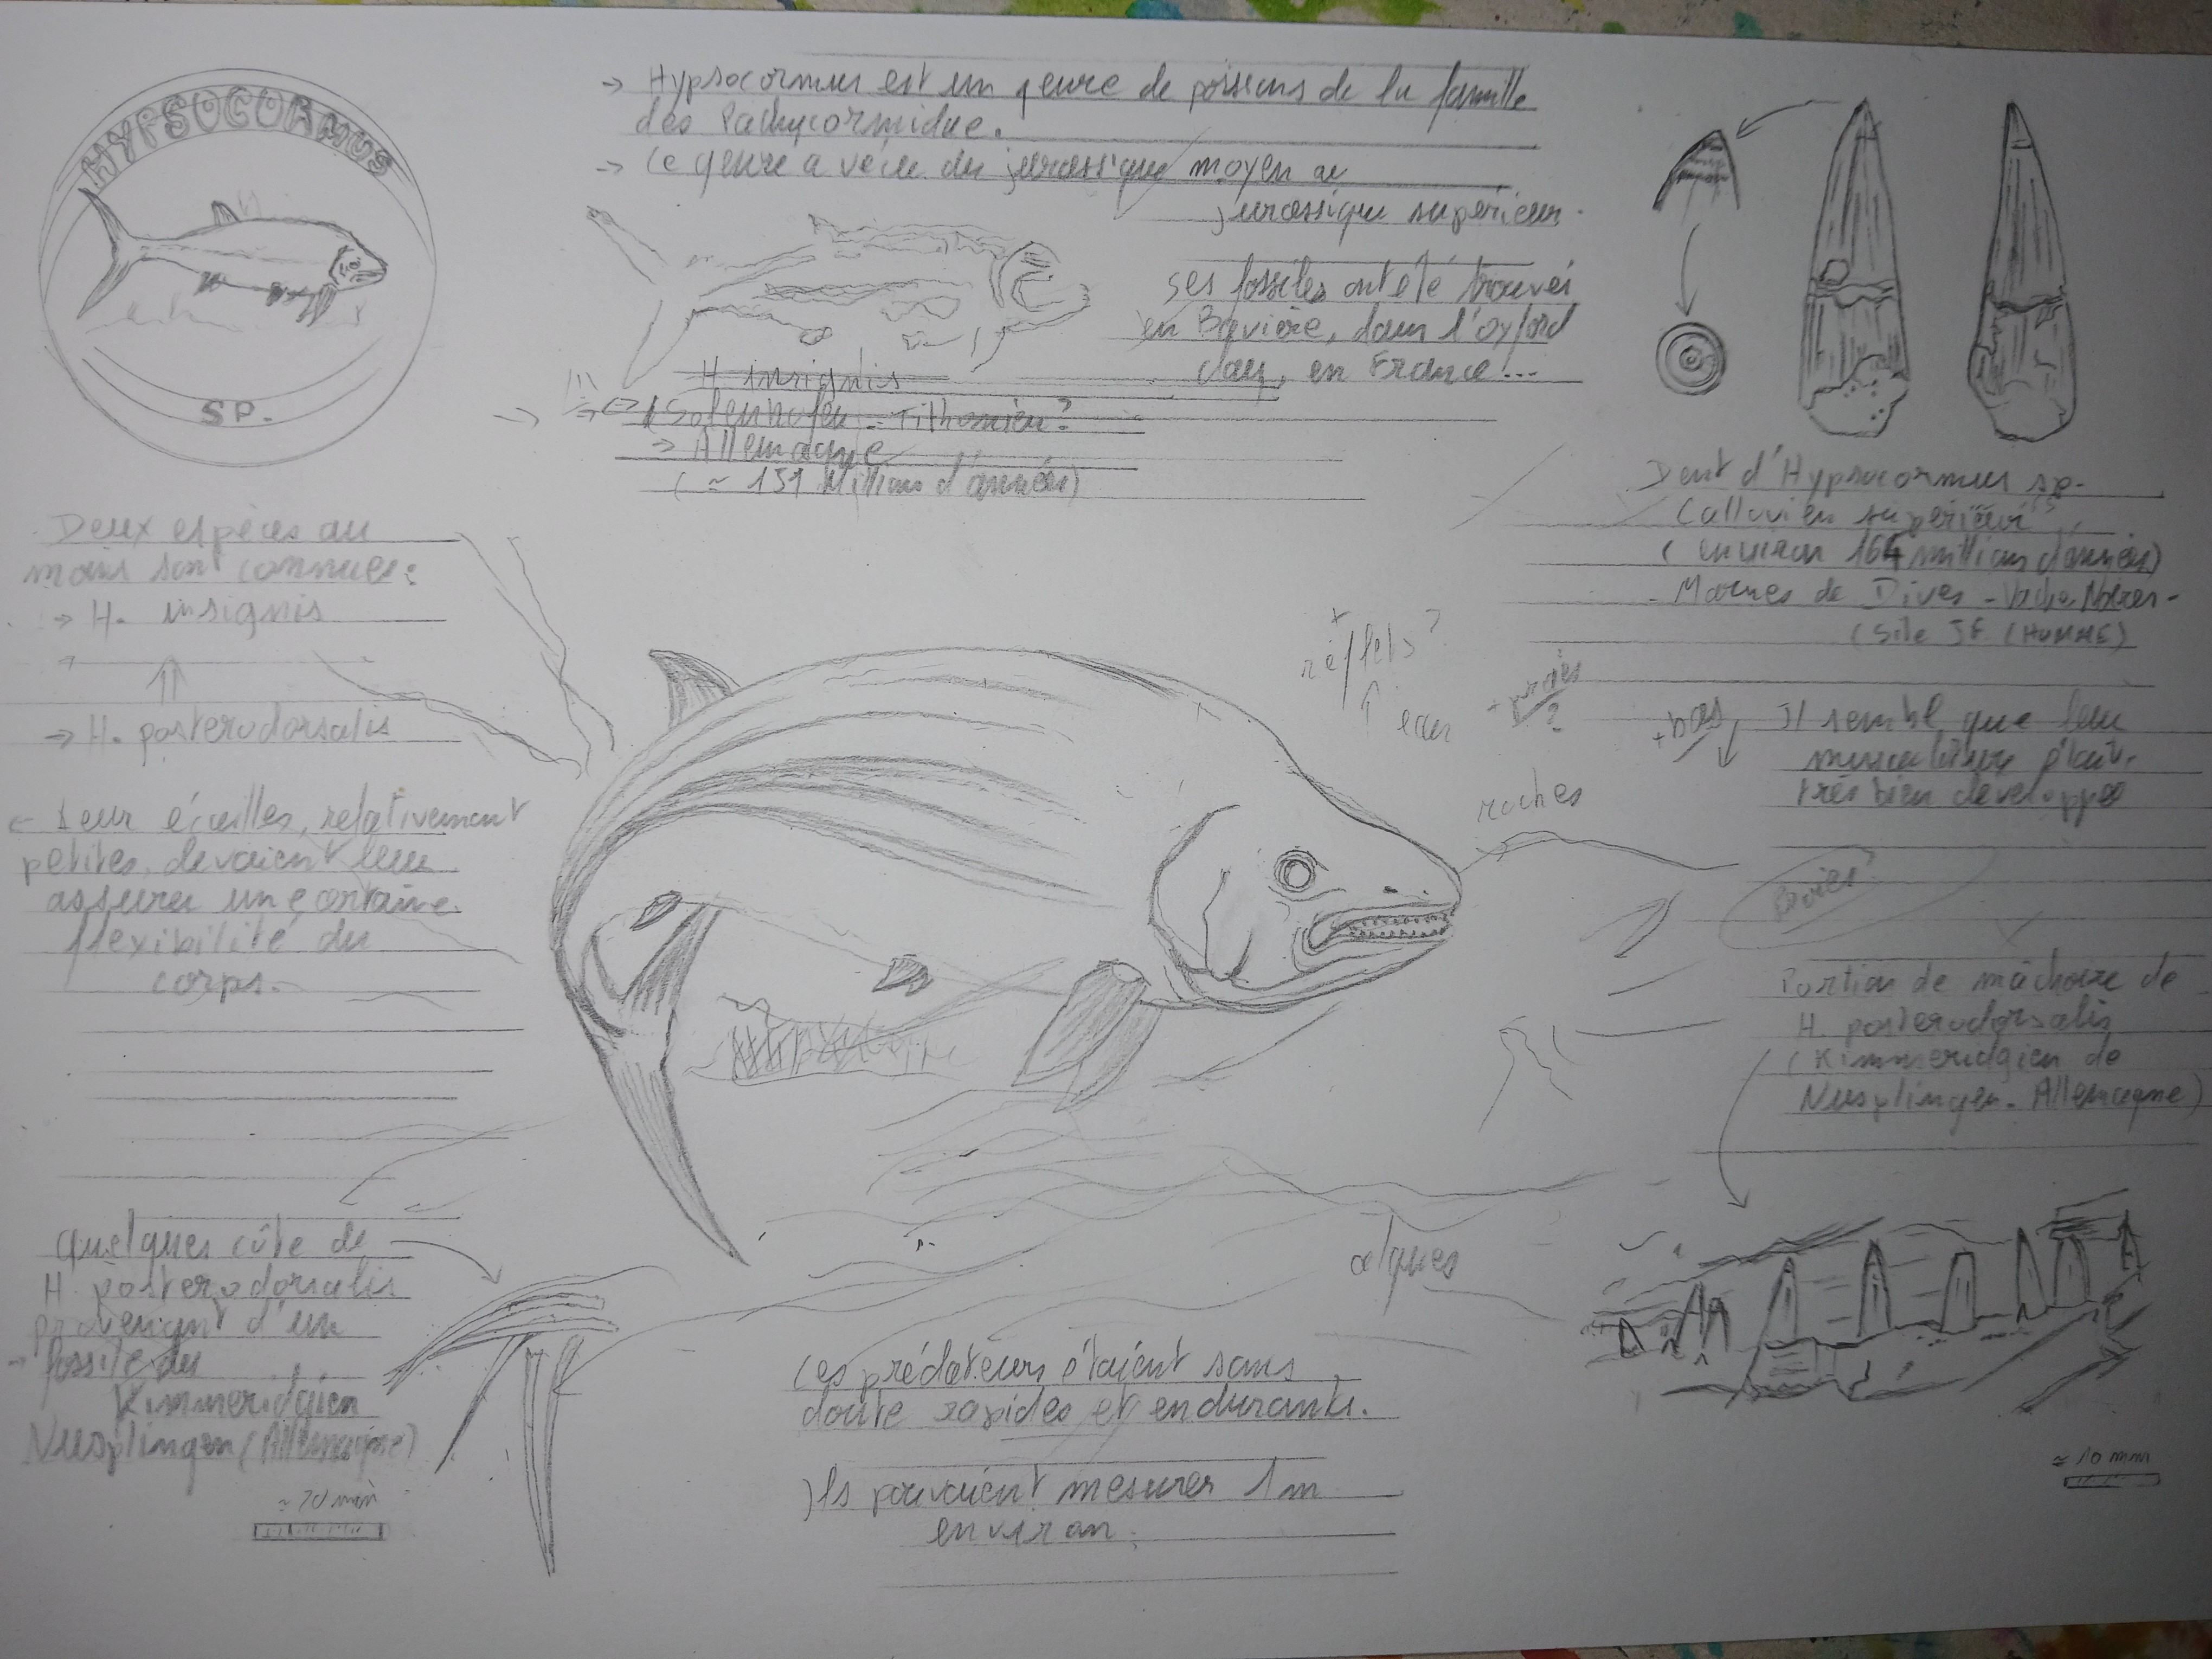 HYPSOCORMUS
SP.
→ Hypsocormus est un genre de poissons de la famille
des Pachycormidae.
→ Ce genre a vécu du jurassique moyen au
jurassique supérieur.
Ses fossiles ont été trouvés
en Bavière, dans l'oxford
clay, en France...
H. insignis
Solenhofen - Tithonien?
→ Allemagne
(≈ 151 Millions d'années)
Dent d'Hypsocormus sp.
Callovien supérieur
(environ 164 millions d'années)
- Marnes de Dives - Vaches Noires -
(Site JF (HUMNE)
Deux espèces au
moins sont connues:
→ H. insignis
→ H. posterodorsalis
← Leur écailles, relativement
petites, devaient leur
assurer une certaine
flexibilité du
corps.
+
réflets?
↑ eau
?
+ bas
roches
Il semble que leur
musculature était
très bien développée
Portion de mâchoire de
H. posterodorsalis
(Kimmeridgien de
Nusplingen. Allemagne)
≈ 10 mm
algues
Quelques côte de
H posterodorsalis
provenant d'un
→ fossile du
Kimmeridgien
Nusplingen (Allemagne)
Ces prédateurs étaient sans
doute rapides et endurants.
Ils pouvaient mesurer 1m
environ.